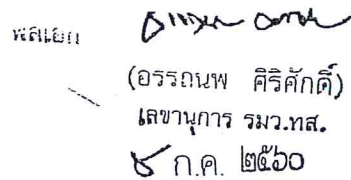 พลเอก
(อรรถนพ ศิริศักดิ์)
เลขานุการ รมว.ทส.
๕ ก.ค. ๒๕๖๐